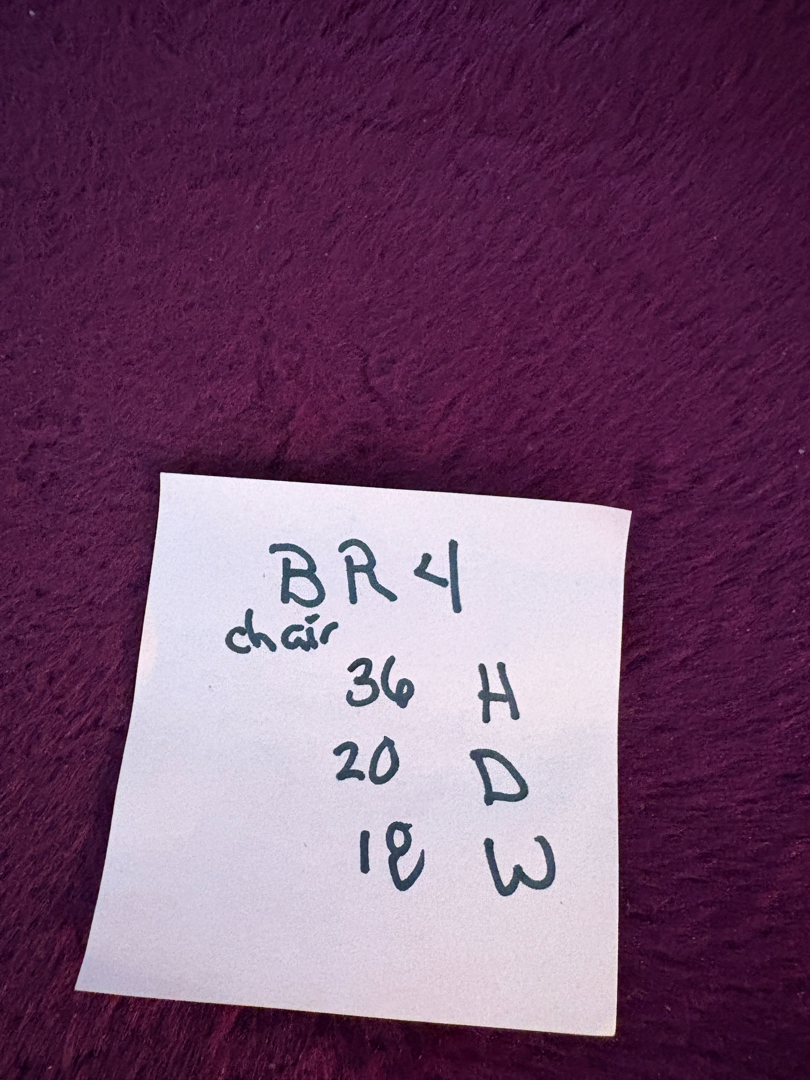 BR 4
chair
36 H
20 D
18 W